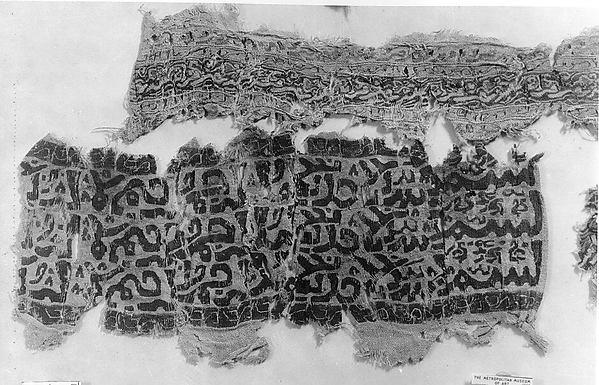 THE METROPOLITAN MUSEUM
OF ART